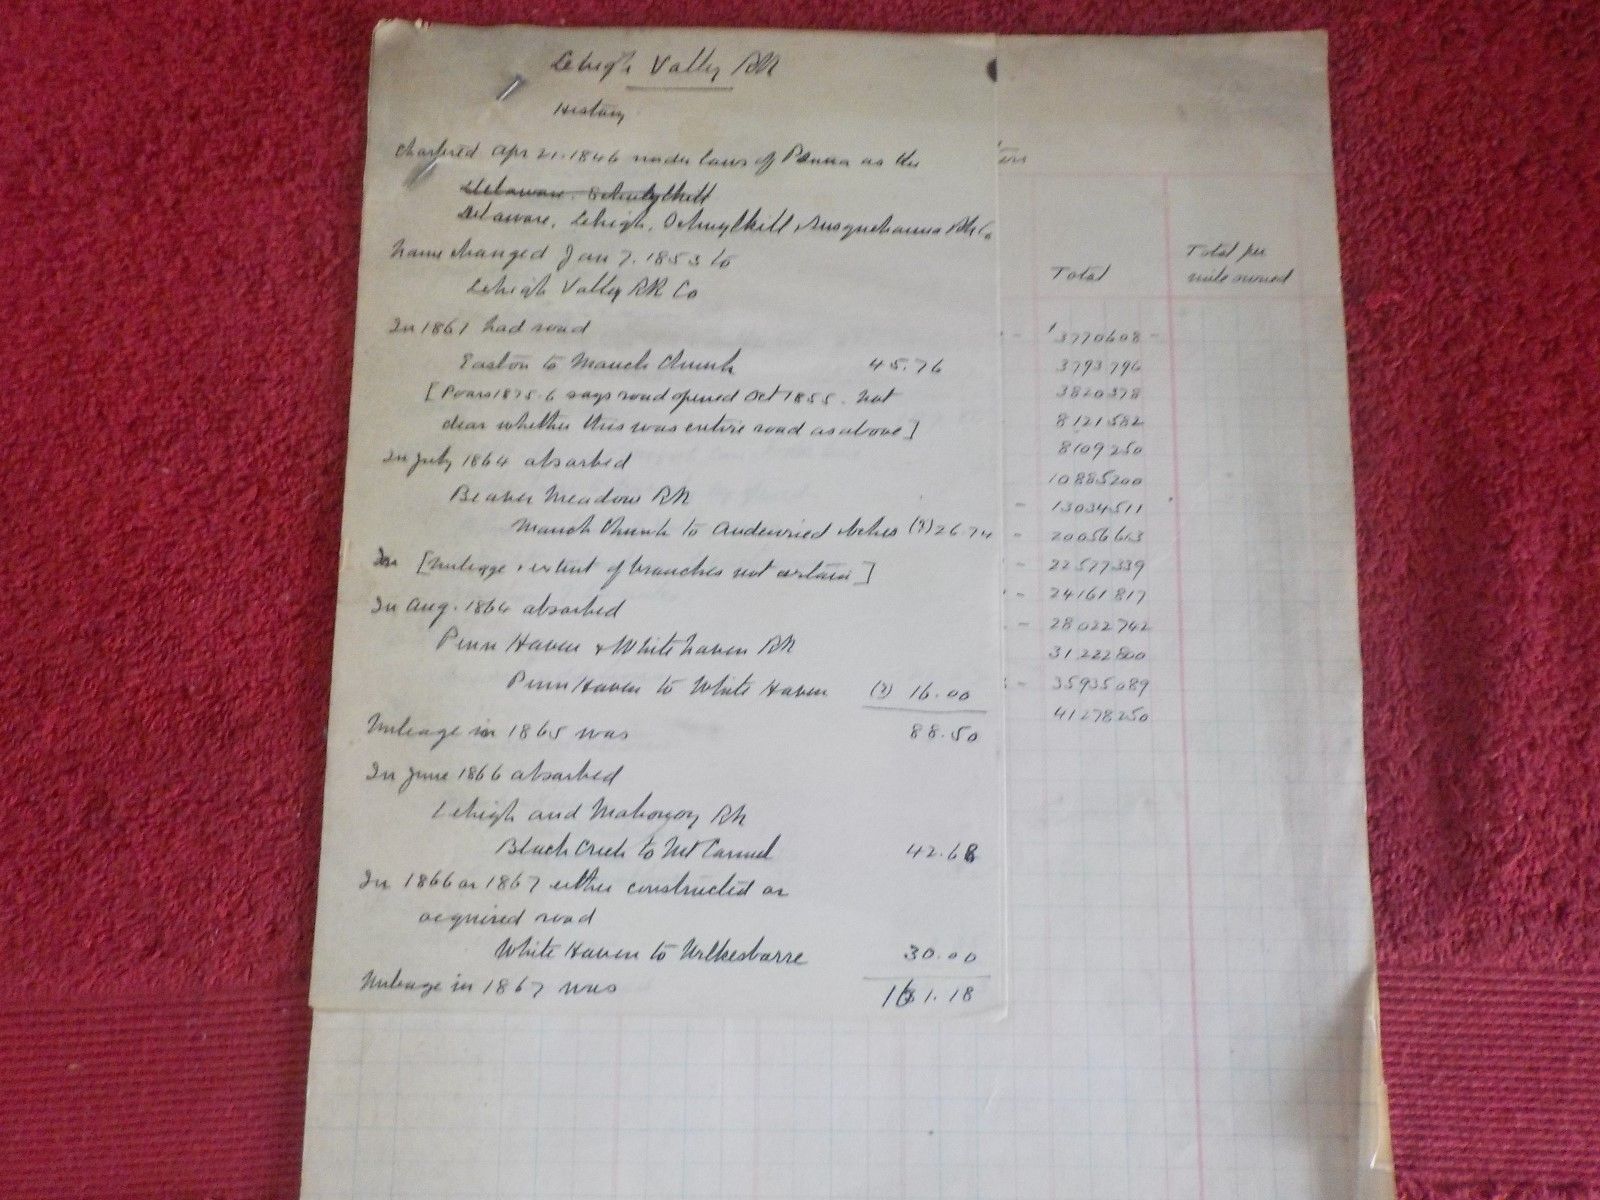 Lehigh Valley RR
History
Chartered Apr 21. 1846 under laws of Penna as the
Delaware. Schuylkill
Delaware, Lehigh, Schuylkill & Susquehanna RR Co
Name changed Jan 7. 1853 to
Lehigh Valley RR Co
In 1861 had road
Easton to Mauch Chunk 45.76
[Poors 1875-6 says road opened Oct 1855. Not
clear whether this was entire road as above]
In July 1864 absorbed
Beaver Meadow RR
Mauch Chunk to Audenried & bches (?) 26.74
In [Mileage & extent of branches not certain]
In Aug. 1864 absorbed
Penn Haven & White Haven RR
Penn Haven to White Haven (?) 16.00
Mileage in 1865 was 88.50
In June 1866 absorbed
Lehigh and Mahonoy RR
Black Creek to Mt Carmel 42.68
In 1866 or 1867 either constructed or
acquired road
White Haven to Wilkesbarre 30.00
Mileage in 1867 was 161.18
Total
Total per
mile owned
3770608
3793796
3820378
8121582
8109250
10885200
13034511
20056663
22577339
24161817
28022742
31222800
35935089
41278250